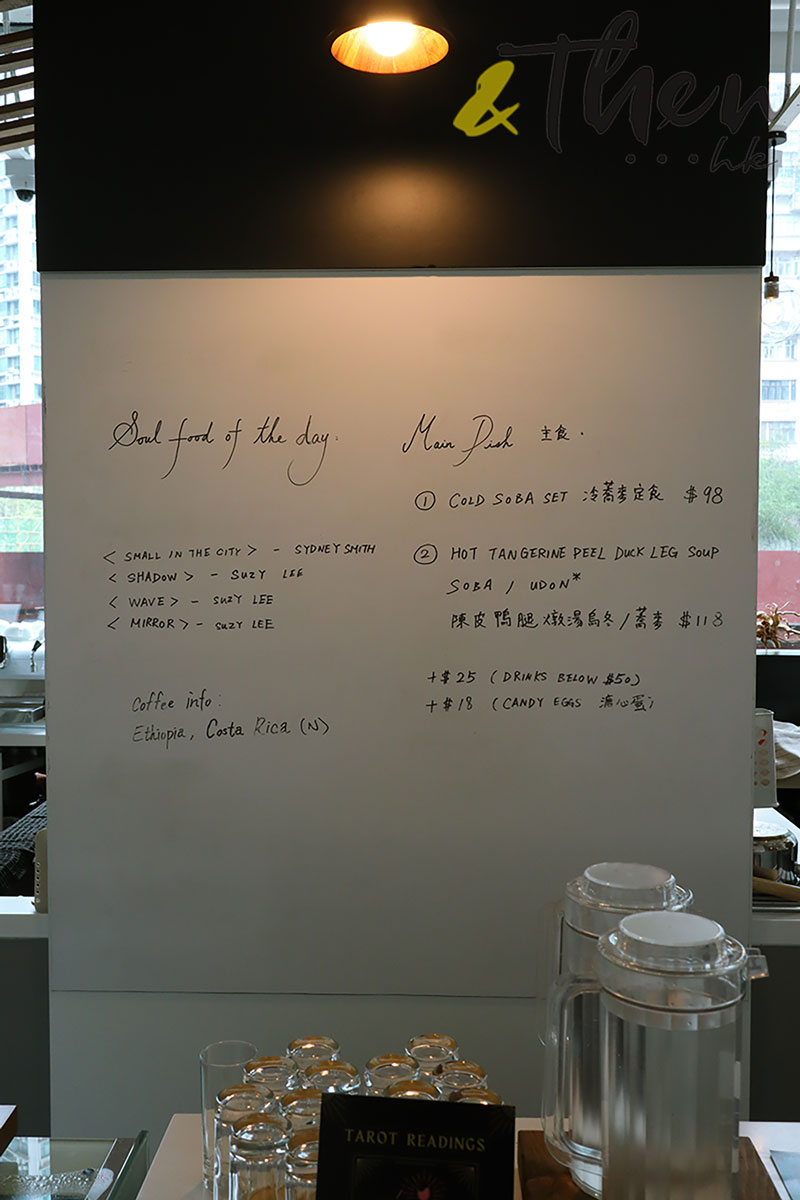 &Then
...hk
Soul food of the day.
< SMALL IN THE CITY > - SYDNEY SMITH
< SHADOW > - SUZY LEE
< WAVE > - SUZY LEE
< MIRROR > - SUZY LEE
Coffee info:
Ethiopia, Costa Rica (N)
Main Dish 主食.
① COLD SOBA SET 冷蕎麥定食 $98
② HOT TANGERINE PEEL DUCK LEG SOUP
SOBA / UDON*
陳皮鴨腿燉湯烏冬/蕎麥 $118
+$25 (DRINKS BELOW $50)
+$18 (CANDY EGGS 溏心蛋)
TAROT READINGS